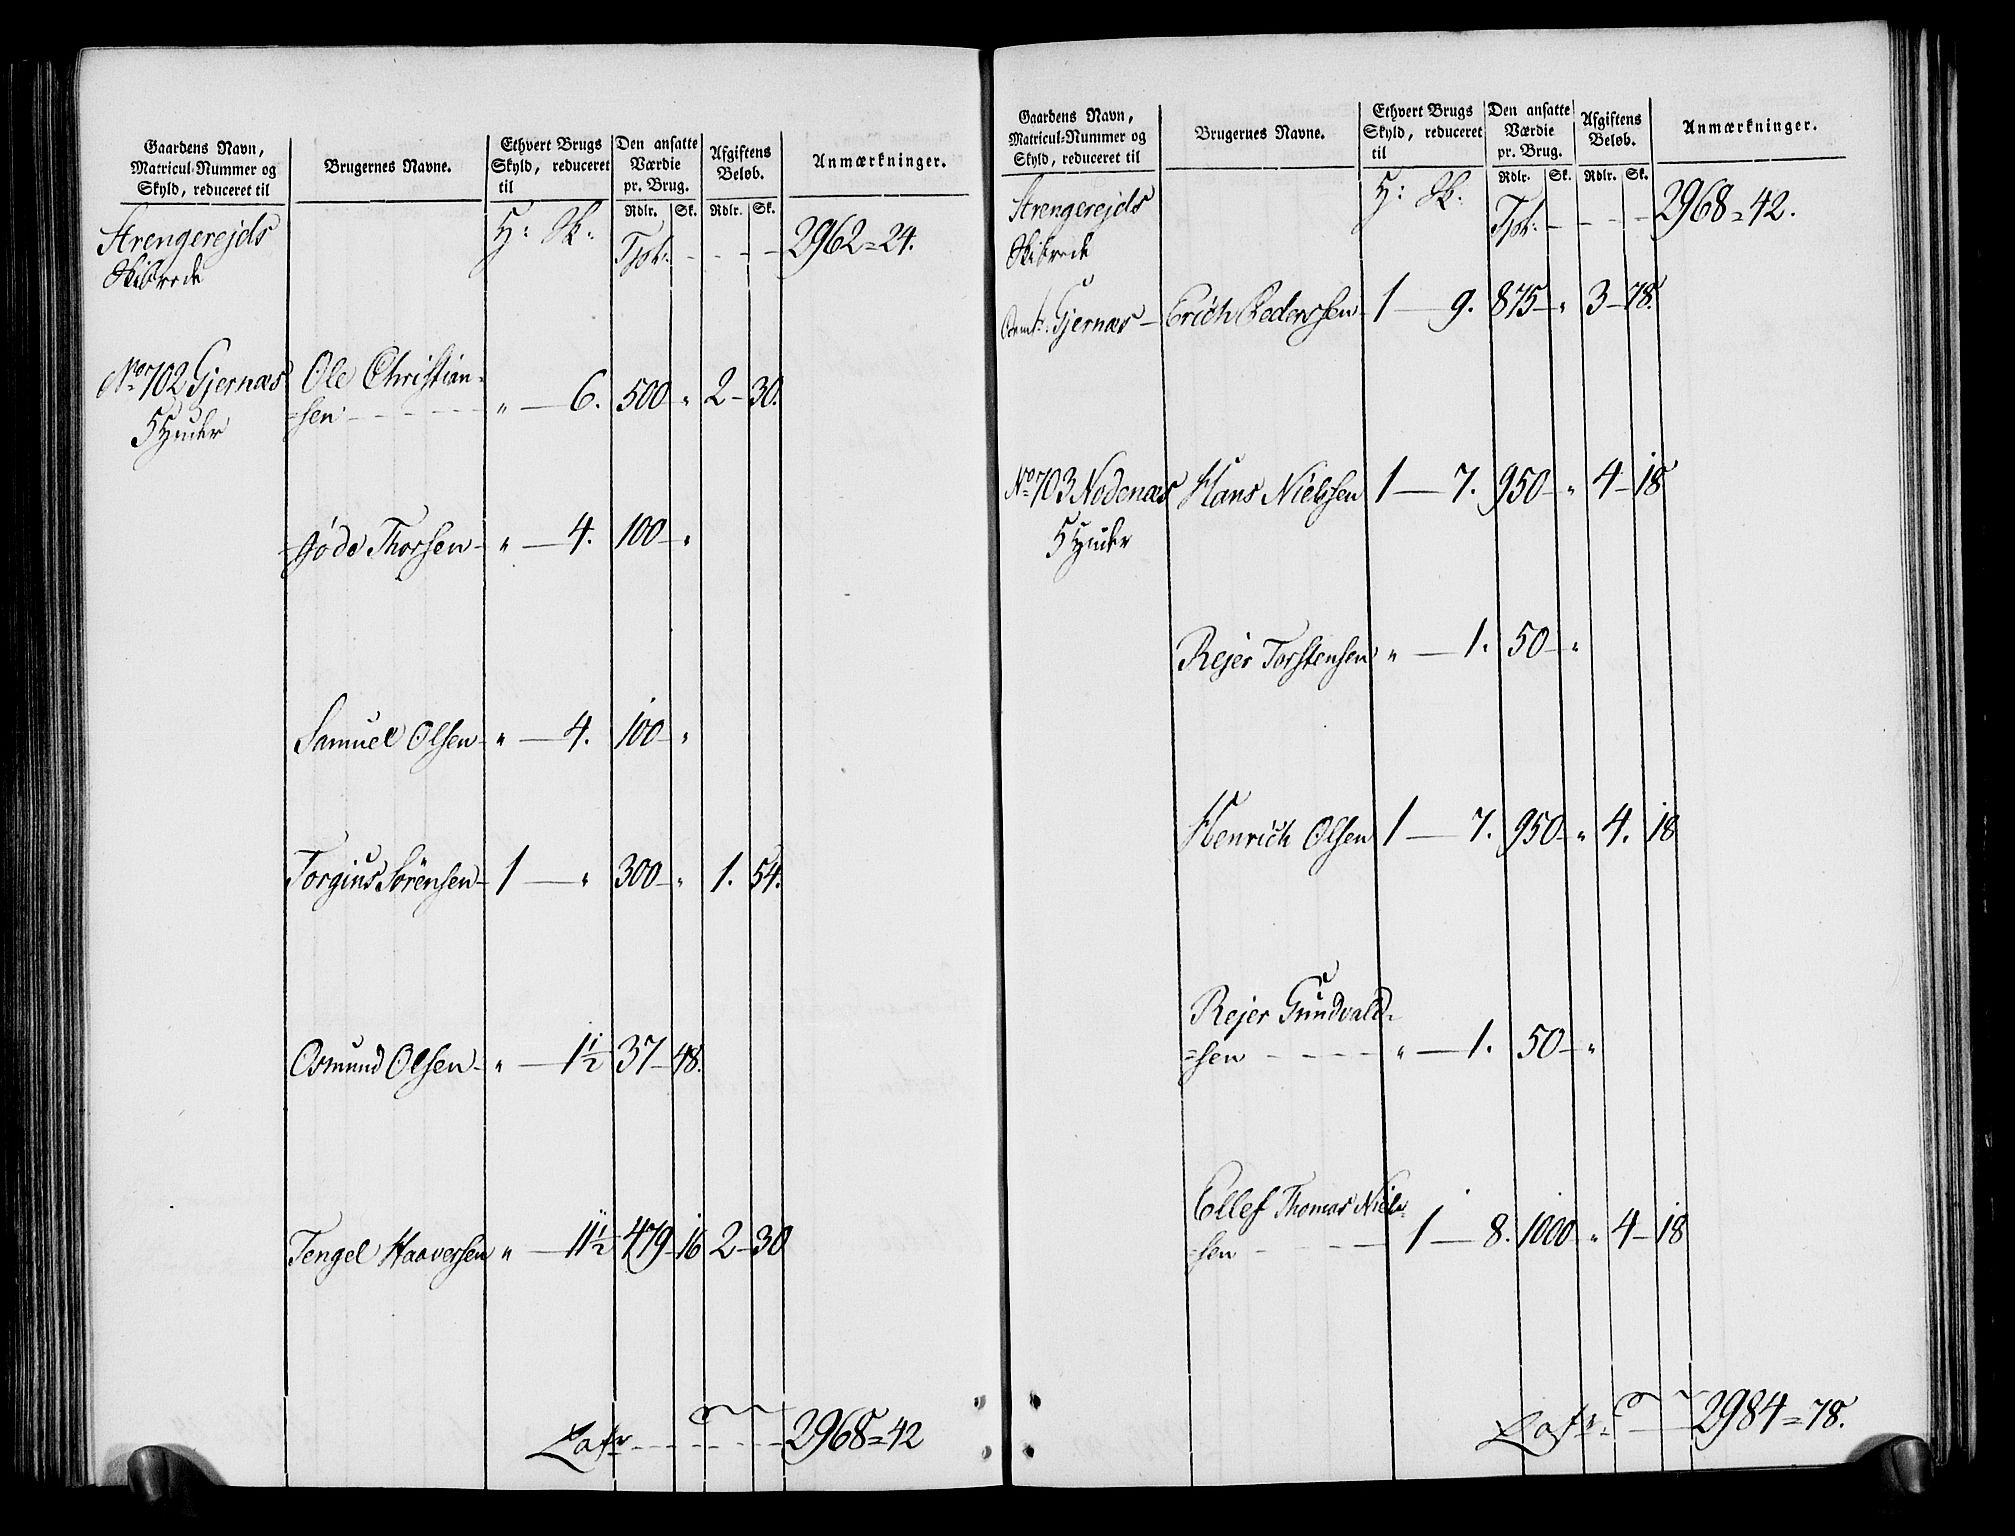 Gaardens Navn,
Matricul-Nummer og
Skyld, reduceret til
Brugernes Navne.
Ethvert Brugs
Skyld, reduceret
til
Den ansatte
Værdie
pr. Brug.
Afgiftens
Beløb.
Anmærkninger.
Rdlr. Sk. Rdlr. Sk.
Strengerejds H: Sk: Tpt: - - - - 2962=24.
Skibrede
No 702 Gjernæs Ole Christian-
5 Huder =sen - - - " — 6. 500 " 2 — 30.
Gjøde Thorsen — " — 4. 100 — "
Samuel Olsen — " — 4. 100 — "
Torgius Sörensen — 1 — " 300 — " 1. 54.
Osmund Olsen — " — 1½ 37 — 48.
Tengel Haaversen " — 11½ 479 — 16 2 — 30
Latr - - - - 2968=42
Gaardens Navn,
Matricul-Nummer og
Skyld, reduceret til
Brugernes Navne.
Ethvert Brugs
Skyld, reduceret
til
Den ansatte
Værdie
pr. Brug.
Afgiftens
Beløb.
Anmærkninger.
Rdlr. Sk. Rdlr. Sk.
Strengerejds H: Sk: Tpt: - - - - 2968=42.
Skibrede
Gjernæs — Erich Pederssen — 1 — 9. 875 — " 3 — 78.
No 703 Nodenæs Hans Nielssen 1 — 7. 950 — " 4 — 18
5 Huder
Rejer Torstensen " — 1. 50 — "
Henrich Olsen 1 — 7. 950 — " 4. 18
Rejer Gundvald-
=sen - - - " — 1. 50 — "
Ellef Thomas Niels-
=sen - - - 1 — 8. 1000 — " 4 — 18
Latr - - - 2984=78.